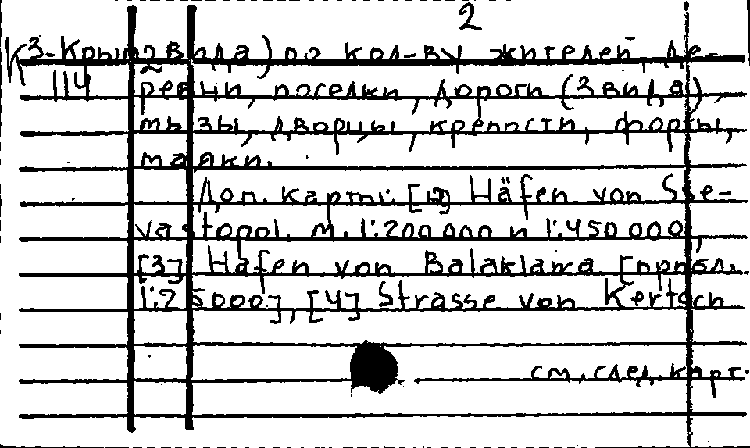 2
К 3-Крым 2 вида) по кол-ву жителей, де-
114 2 ревни, поселки, дороги (3 вида),
мызы, дворцы, крепости, форты,
маяки.
Доп. карты: [2] Häfen von Sse-
vastopol. м. 1:200 000 и 1:450 000,
[3] Hafen von Balaklawa [прибл.
1:25000], [4] Strasse von Kertsch
см. след. карт.